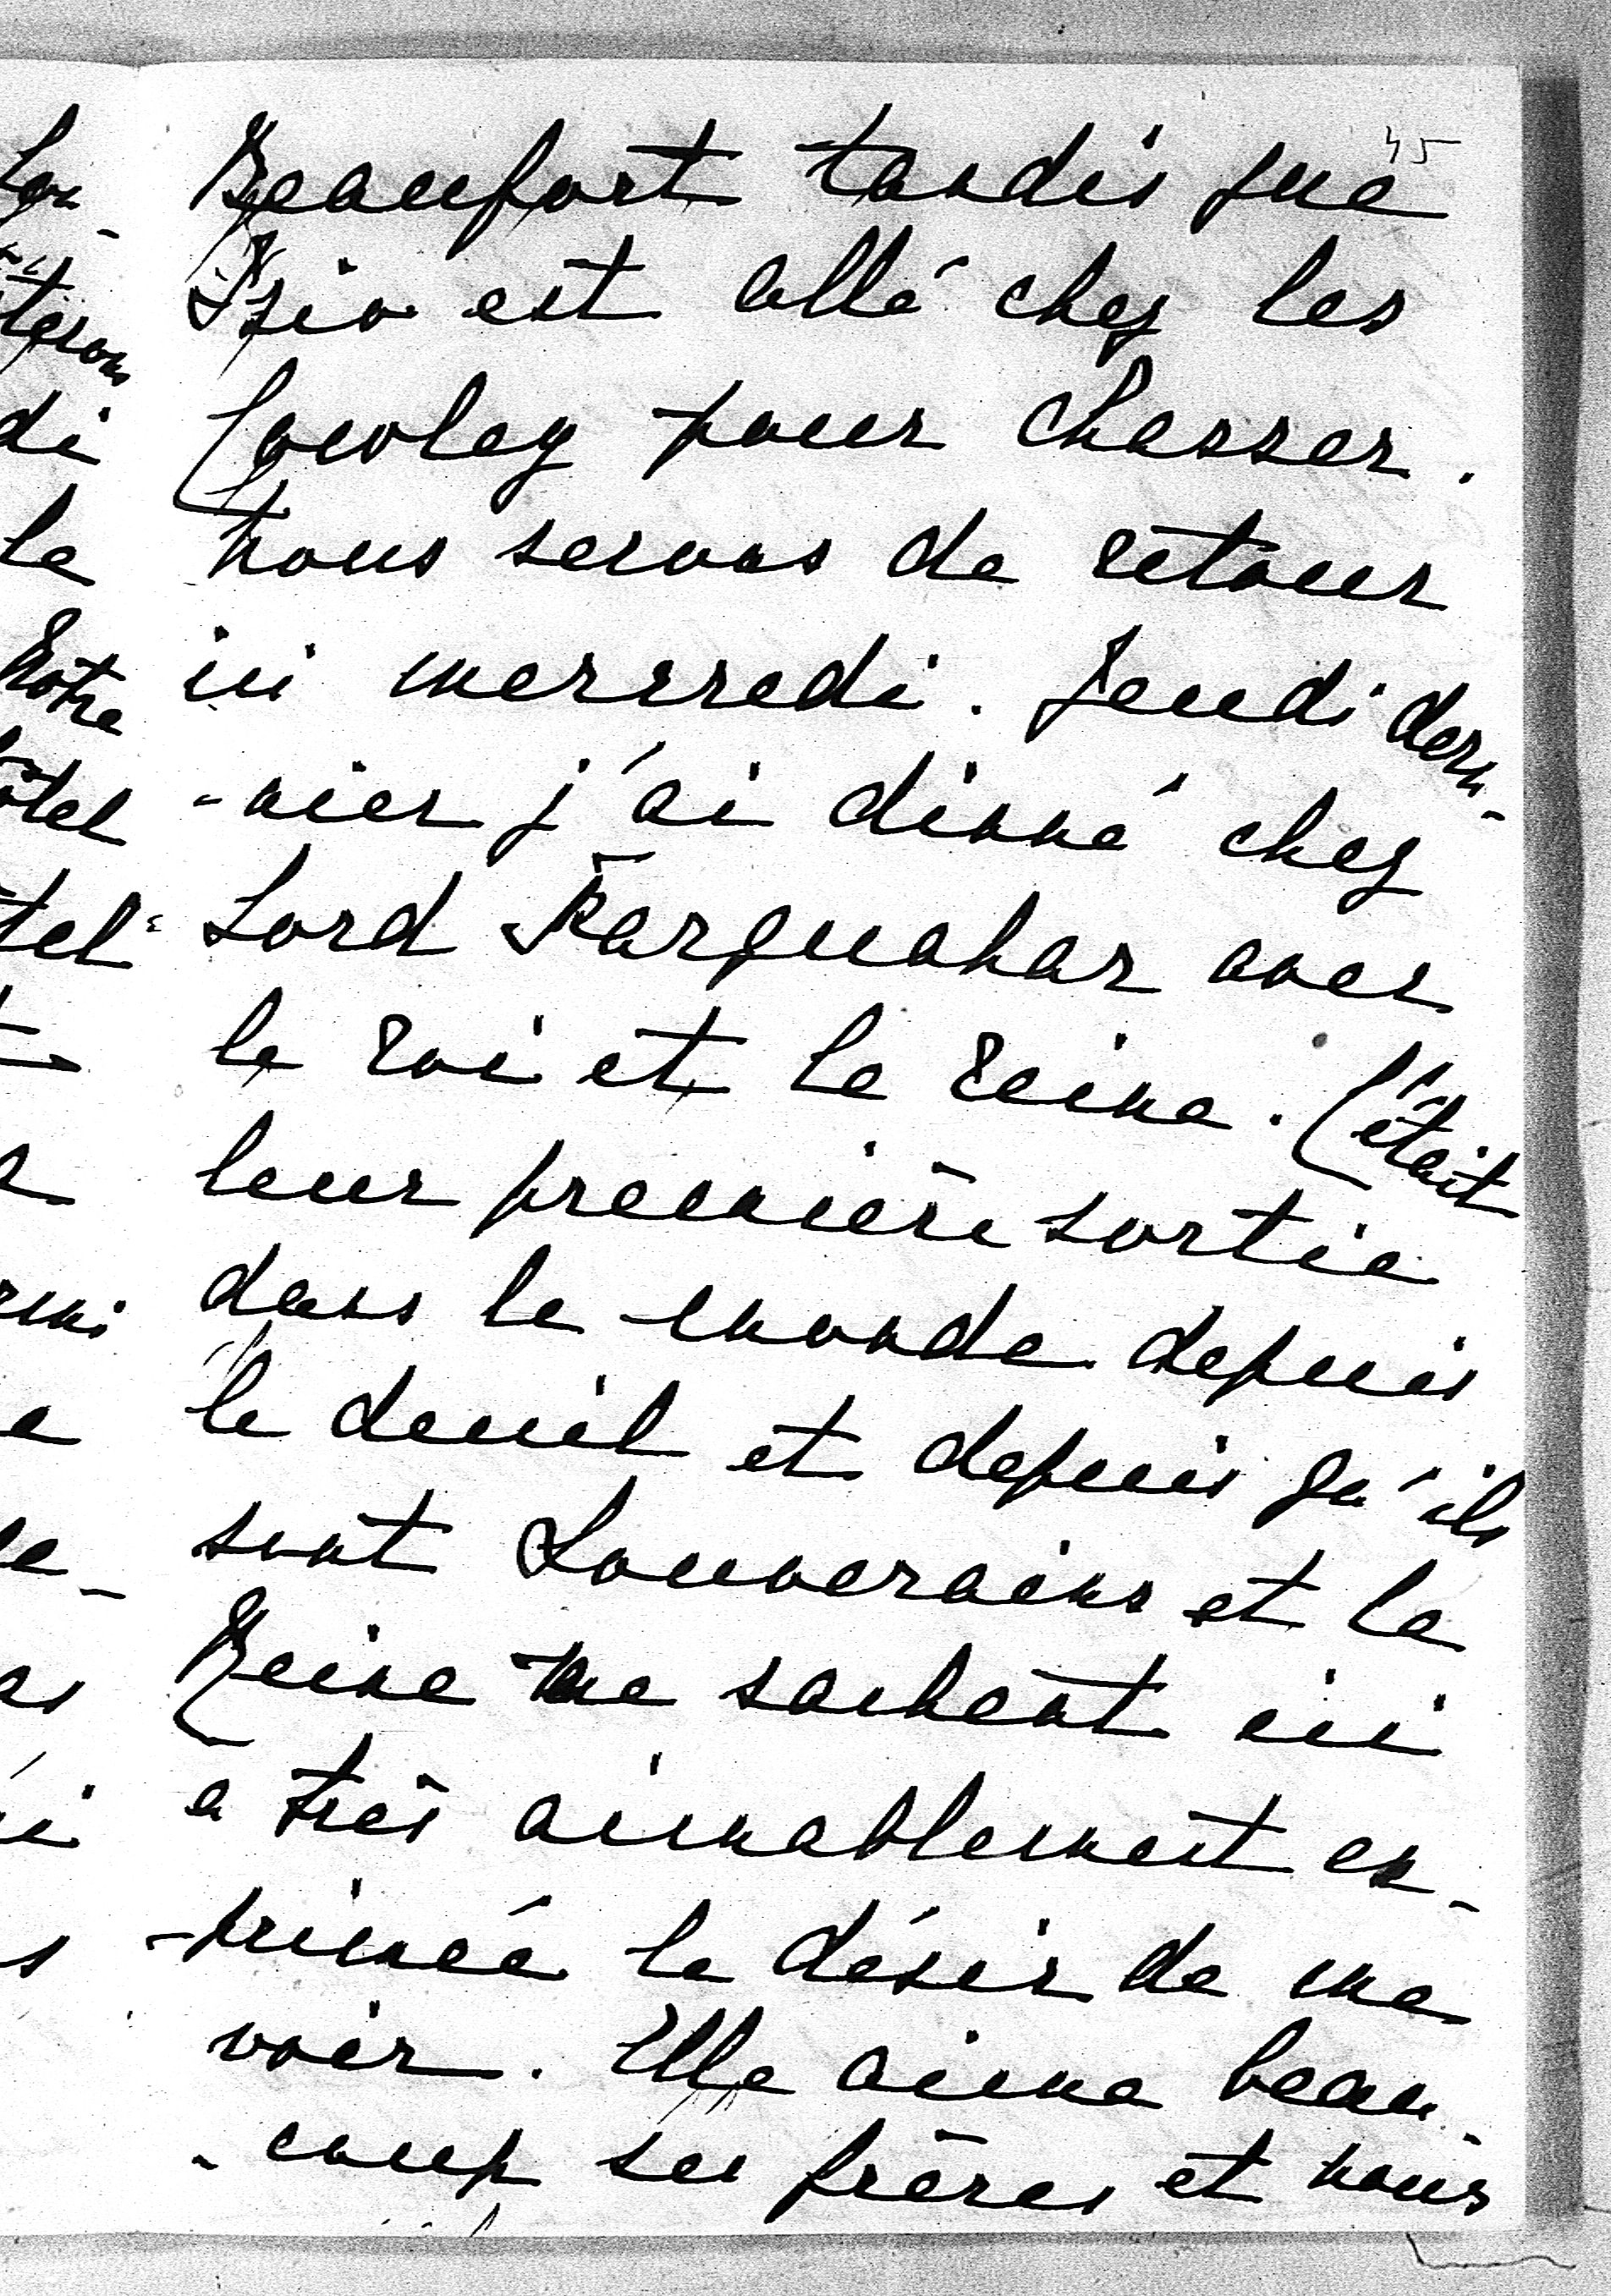 45
Beaufort tandis que
Isio est allé chez les
Cowley pour chasser.
Nous serons de retour
ici mercredi. Jeudi der-
-nier j'ai dinné chez
Lord Farquahar avec
le roi et la reine. C'était
leur première sortie
dans le monde depuis
le deuil et depuis qu'ils
sont Souverains et la
Reine me sachant ici
a très aimablement ex-
-primée le désir de me
voir. Elle aime beau-
-coup ses frères et nous